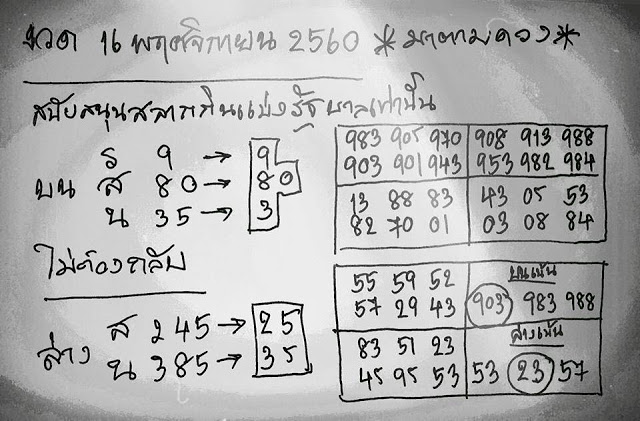 งวด 16 พฤศจิกายน 2560 *มาตามดวง*
สนับสนุนสลากกินแบ่งรัฐบาลเท่านั้น
บน
ร 9 → 9
ส 80 → 80
น 35 → 3
ไม่ต้องกลับ
ล่าง
ส 245 → 25
น 385 → 35
983 905 970
903 901 943
908 913 988
953 982 984
13 88 83
82 70 01
43 05 53
03 08 84
55 59 52
57 29 43
บนเน้น
903 983 988
83 51 23
45 95 53
ล่างเน้น
53 23 57